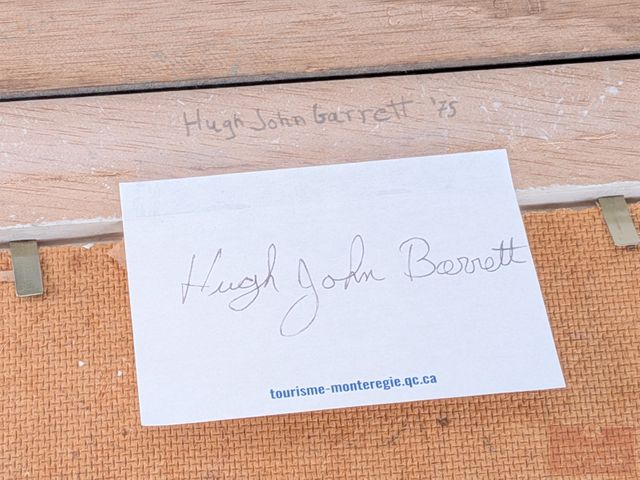 Hugh John Garrett '75
Hugh John Barrett
tourisme-monteregie.qc.ca